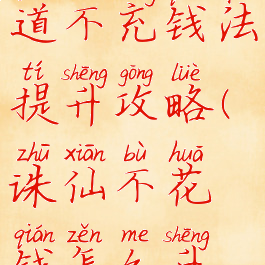 道不充钱法
tí shēng gōng lüè
提升攻略(
zhū xiān bù huā
诛仙不花
qián zěn me shēng